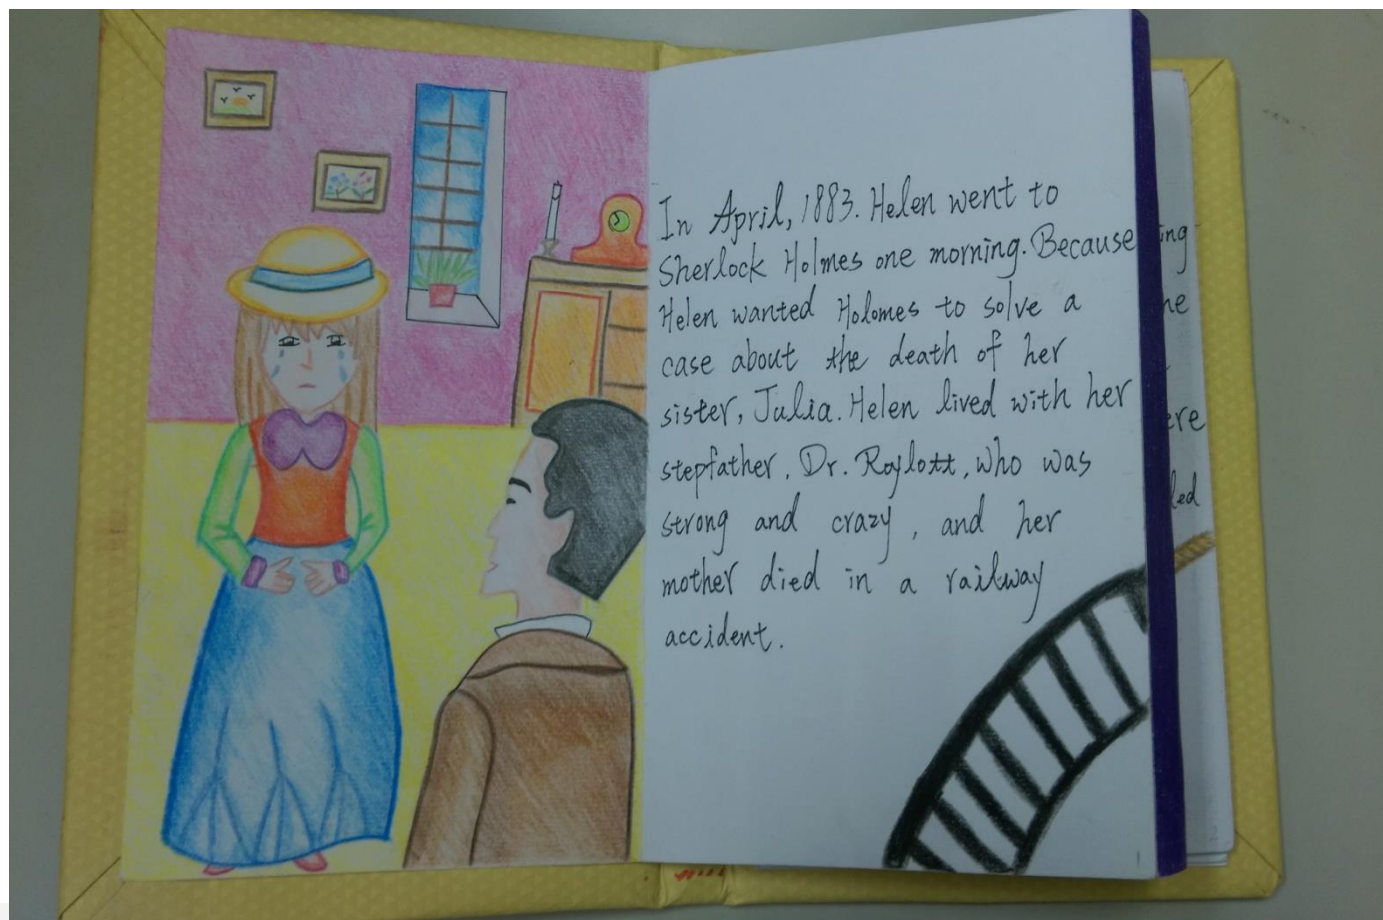 In April, 1883. Helen went to
Sherlock Holmes one morning. Because
Helen wanted Holomes to solve a
case about the death of her
sister, Julia. Helen lived with her
stepfather, Dr. Roylott, who was
strong and crazy, and her
mother died in a railway
accident.